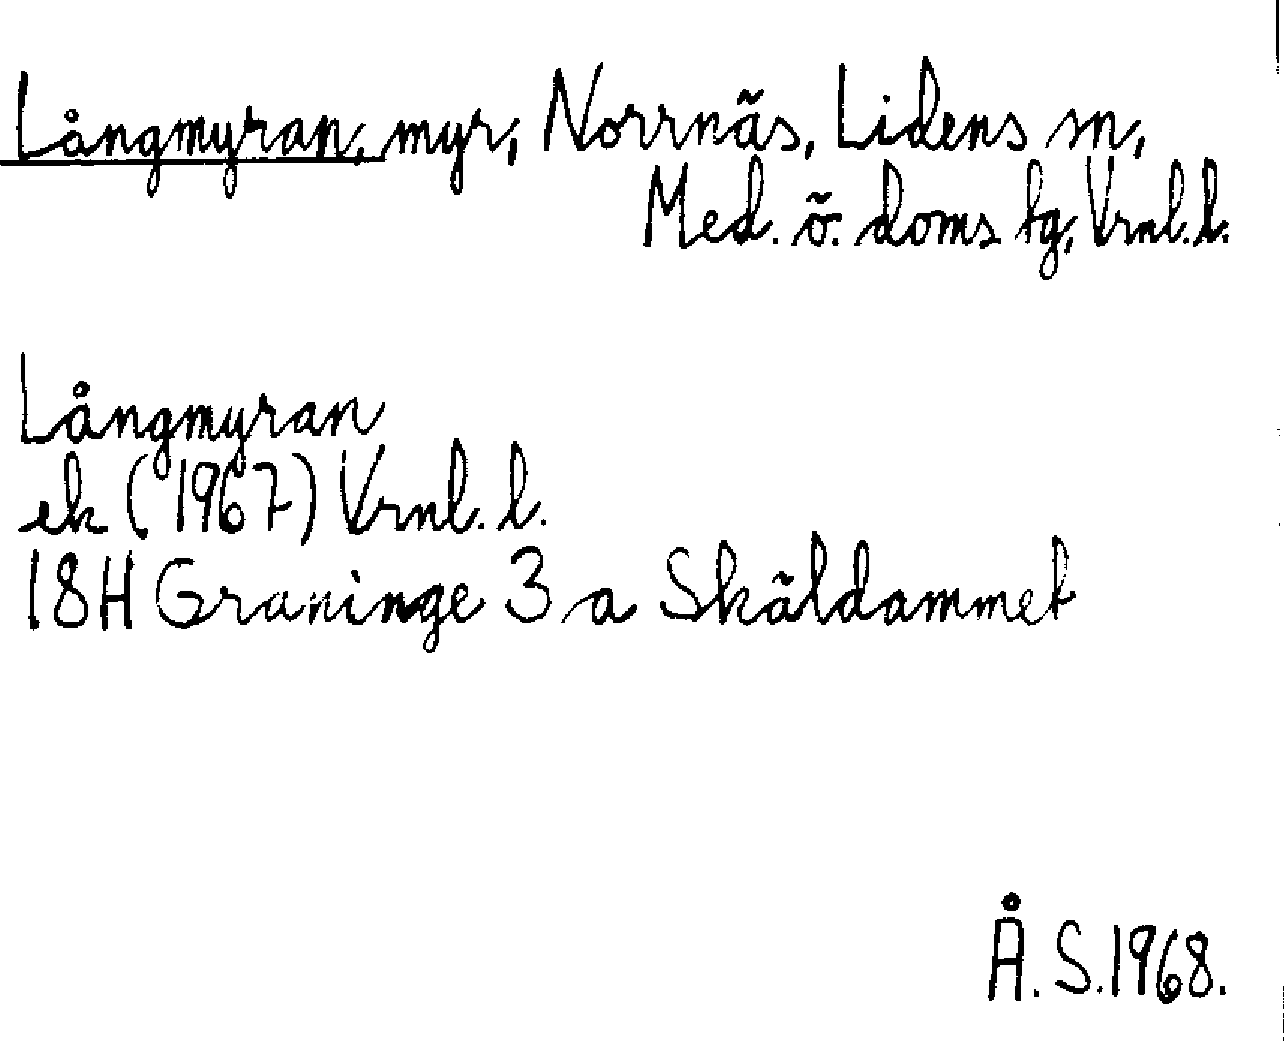 Långmyran, myr, Norrnäs, Lidens sn,
Med. ö. doms tg, Vrnl. l.
Långmyran
ek (1967) Vrnl. l.
18H Graninge 3 a Skäldammet
Å. S. 1968.